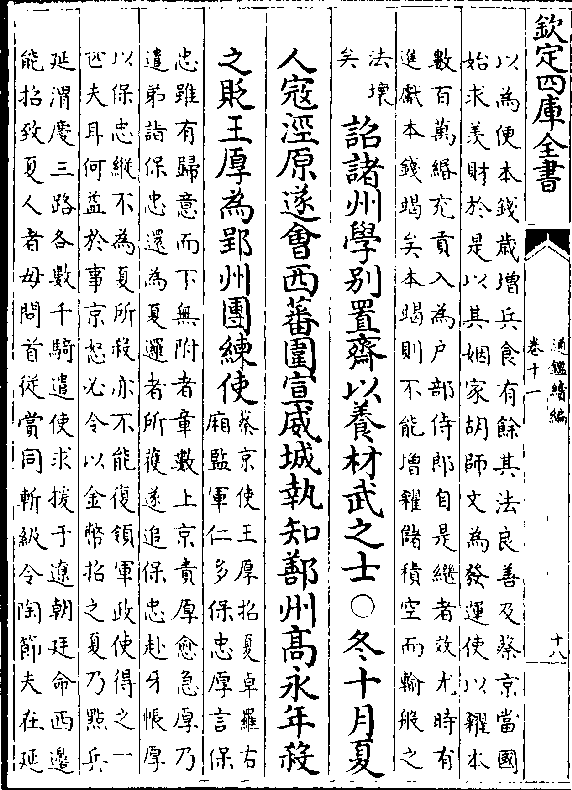 欽定四庫全書
通鑑續編
卷十一
十八
以為使本錢歳增兵食有餘其法良善及蔡京當國
始求羨財於是以其姻家胡師文為發運使以糴本
數百萬緡充貢入為户部侍郎自是繼者效尤時有
進獻本錢竭矣本竭則不能增糴儲積空而輸般之
法壞
矣
詔諸州學别置齋以養材武之士○冬十月夏
人寇涇原遂會西蕃圍宣威城執知鄯州髙永年殺
之貶王厚為郢州團練使
蔡京使王厚招夏卓羅右
廂監軍仁多保忠厚言保
忠雖有歸意而下無附者章數上京責厚愈急厚乃
遣弟詣保忠還為夏邏者所獲遂追保忠赴牙帳厚
以保忠縱不為夏所殺亦不能復領軍政使得之一
匹夫耳何益於事京怒必令以金幣招之夏乃點兵
延渭慶三路各數千騎遣使求援于遼朝廷命西邊
能招致夏人者毋問首從賞同斬級令陶節夫在延